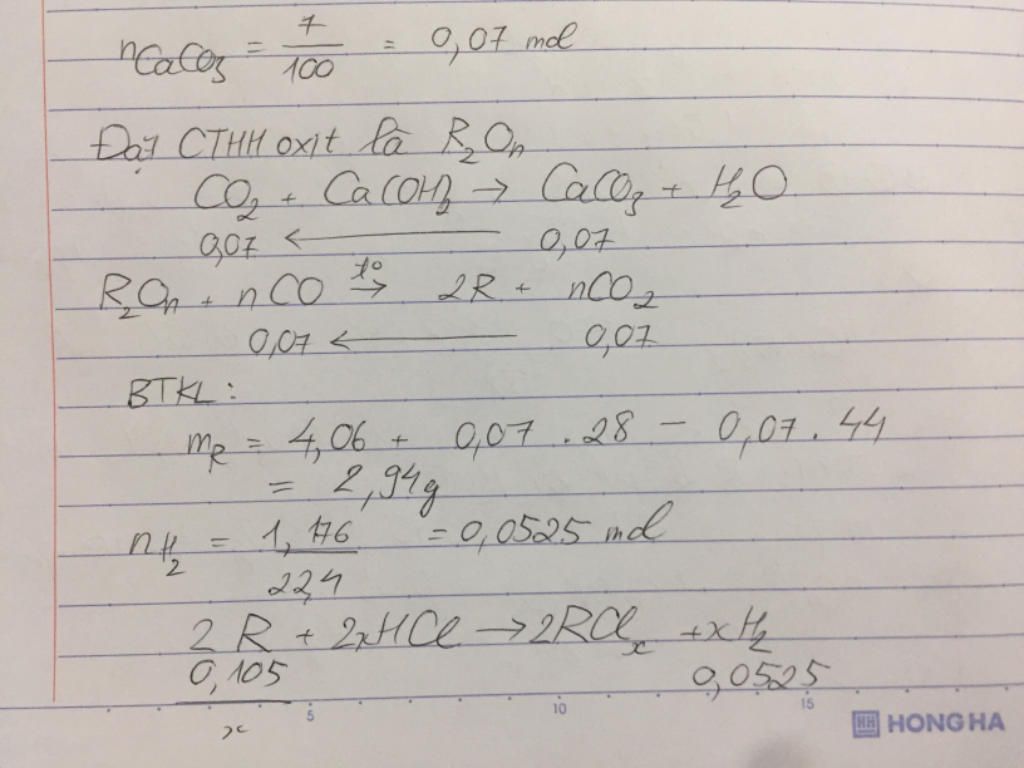 nCaCO₃ = 7/100 = 0,07 mol
Đặt CTHH oxit là R₂Oₙ
CO₂ + Ca(OH)₂ → CaCO₃ + H₂O
0,07 ← 0,07
R₂Oₙ + nCO t° → 2R + nCO₂
0,07 ← 0,07
BTKL:
mR = 4,06 + 0,07 . 28 − 0,07 . 44
= 2,94g
nH₂ = 1,176/22,4 = 0,0525 mol
2R + 2xHCl → 2RClₓ + xH₂
0,105/x 0,0525
5 10 15
HH HONG HA